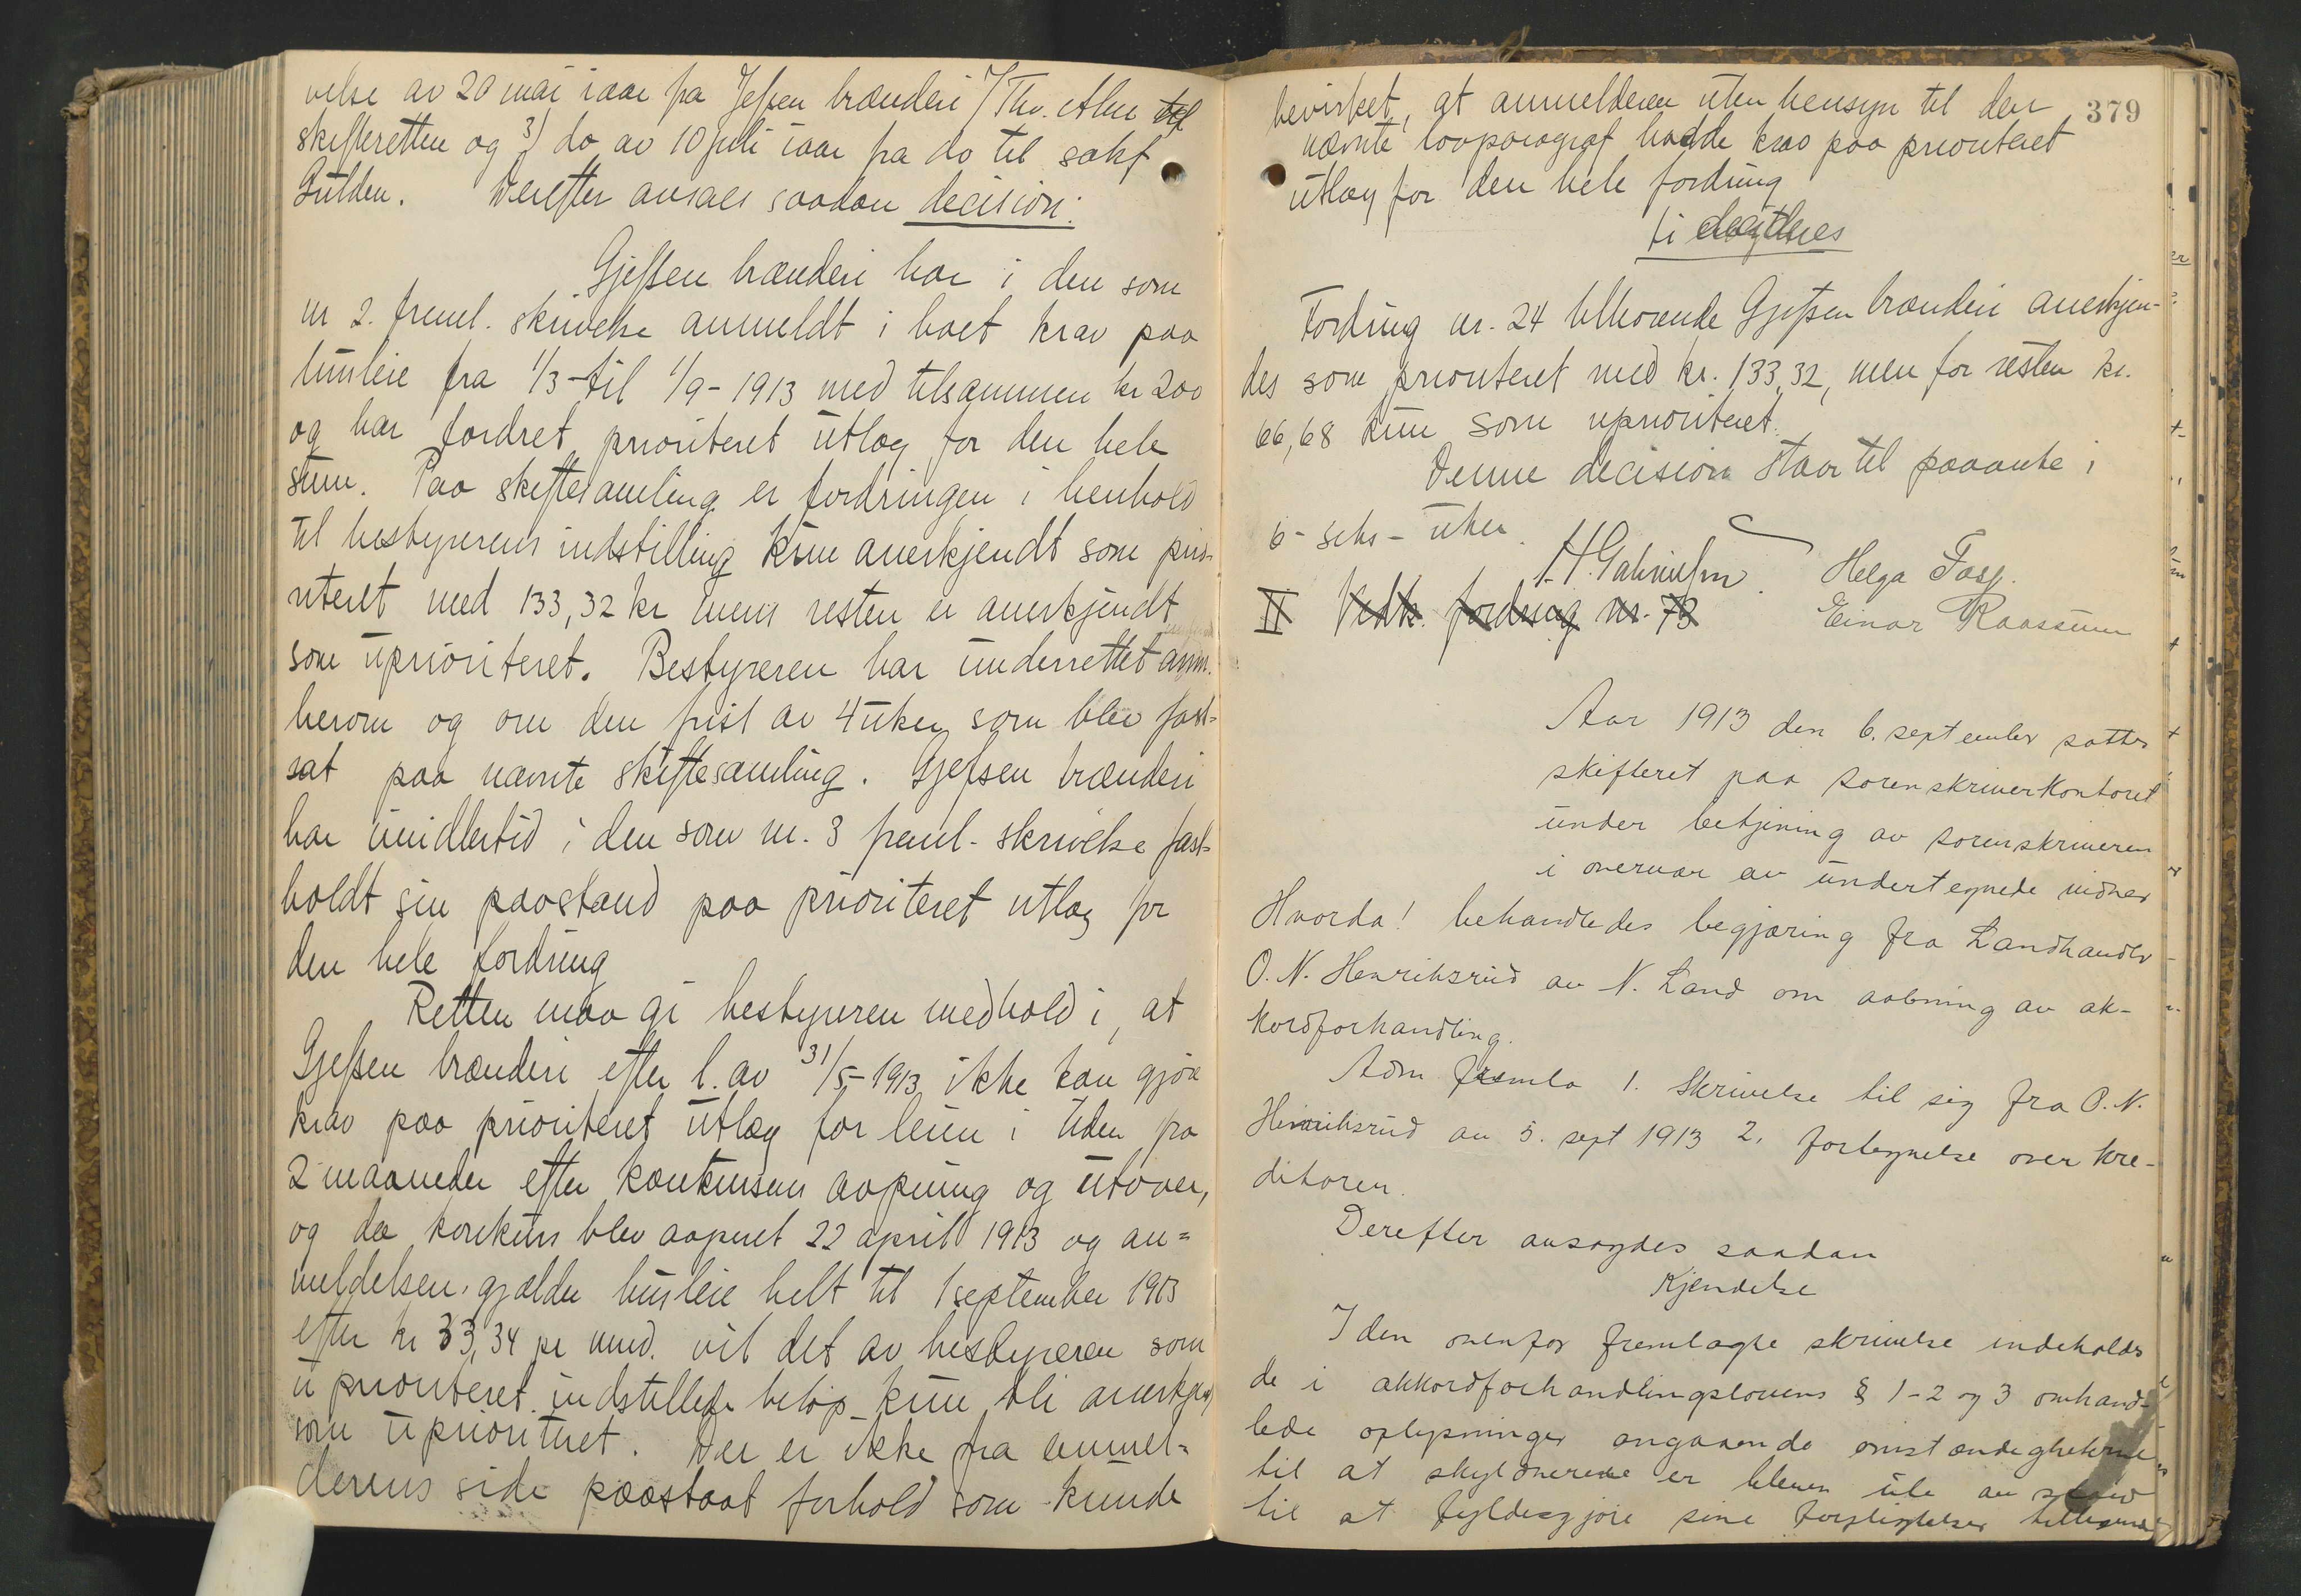 velse av 20 mai iaar fra Jessen brænderi v/ Thv. Alm til
skifteretten og 3) do av 10 juli iaar fra do til sakf
Gulden. Derefter avsaes saadan decision:
Gjessen brænderi har i den som
nr 2. freml. skrivelse anmeldt i boet krav paa
husleie fra 1/3-til 1/9-1913 med tilsammen kr 200
og har fordret prioriteret utlæg for den hele
sum. Paa skiftesamling er fordringen i henhold
til bestyrerens indstilling kun anerkjendt som prio-
riteret med 133,32 kr mens resten er anerkjendt
som uprioriteret. Bestyreren har underrettet anm.
herom og om den frist av 4 uker som blev fast-
sat paa nævnte skiftesamling. Gjessen brænderi
har imidlertid i den som nr. 3 freml. skrivelse fast-
holdt sin paastand paa prioriteret utlæg for
den hele fordring
Retten maa gi bestyreren medhold i, at
Gjessen brænderi efter l. av 31/5-1913 ikke kan gjøre
krav paa prioriteret utlæg for leien i tiden fra
2 maaneder efter konkursens aapning og utover,
og da konkurs blev aapnet 22 april 1913 og an-
meldelsen gjælder husleie helt til 1 september 1913
efter kr 33,34 pr mnd. vil det av bestyreren som
uprioriteret indstillede beløp kun bli anerkjendt
som uprioriteret. Der er ikke fra anmel-
derens side paastaat forhold som kunde
379
bevirket, at anmelderen uten hensyn til den
nævnte lovparagraf hadde krav paa prioriteret
utlæg for den hele fordring
ti
Fordring nr. 24 tilhørende Gjessen brænderi anerkjen-
des som prioriteret med kr. 133,32, men for resten kr.
66,68 kun som uprioriteret.
Denne decision staar til paaanke i
6-seks-uker.
H. Gabrielsen Helga
II Vedk. fordring nr. 73 Einar Raassum
Aar 1913 den 6. september sattes
skifteret paa sorenskriverkontoret
under betjening av sorenskriveren
i overvær av undertegnede vidner
Hvorda! behandledes begjæring fra Landhandler
O. N. Henriksrud av N. Land om aabning av ak-
kordforhandling.
Adm fremla 1. Skrivelse til sig fra O. N.
Henriksrud av 5. sept 1913 2. fortegnelse over kre-
ditorer.
Derefter avsagdes saadan
Kjendelse
I den ovenfor fremlagte skrivelse indeholdes
de i akkordforhandlingslovens § 1-2 og 3 omhand-
lede oplysninger angaaende omstændigheterne
til at skyldneren er bleven ute av stand
til at fyldesgjøre sine forpligtelser